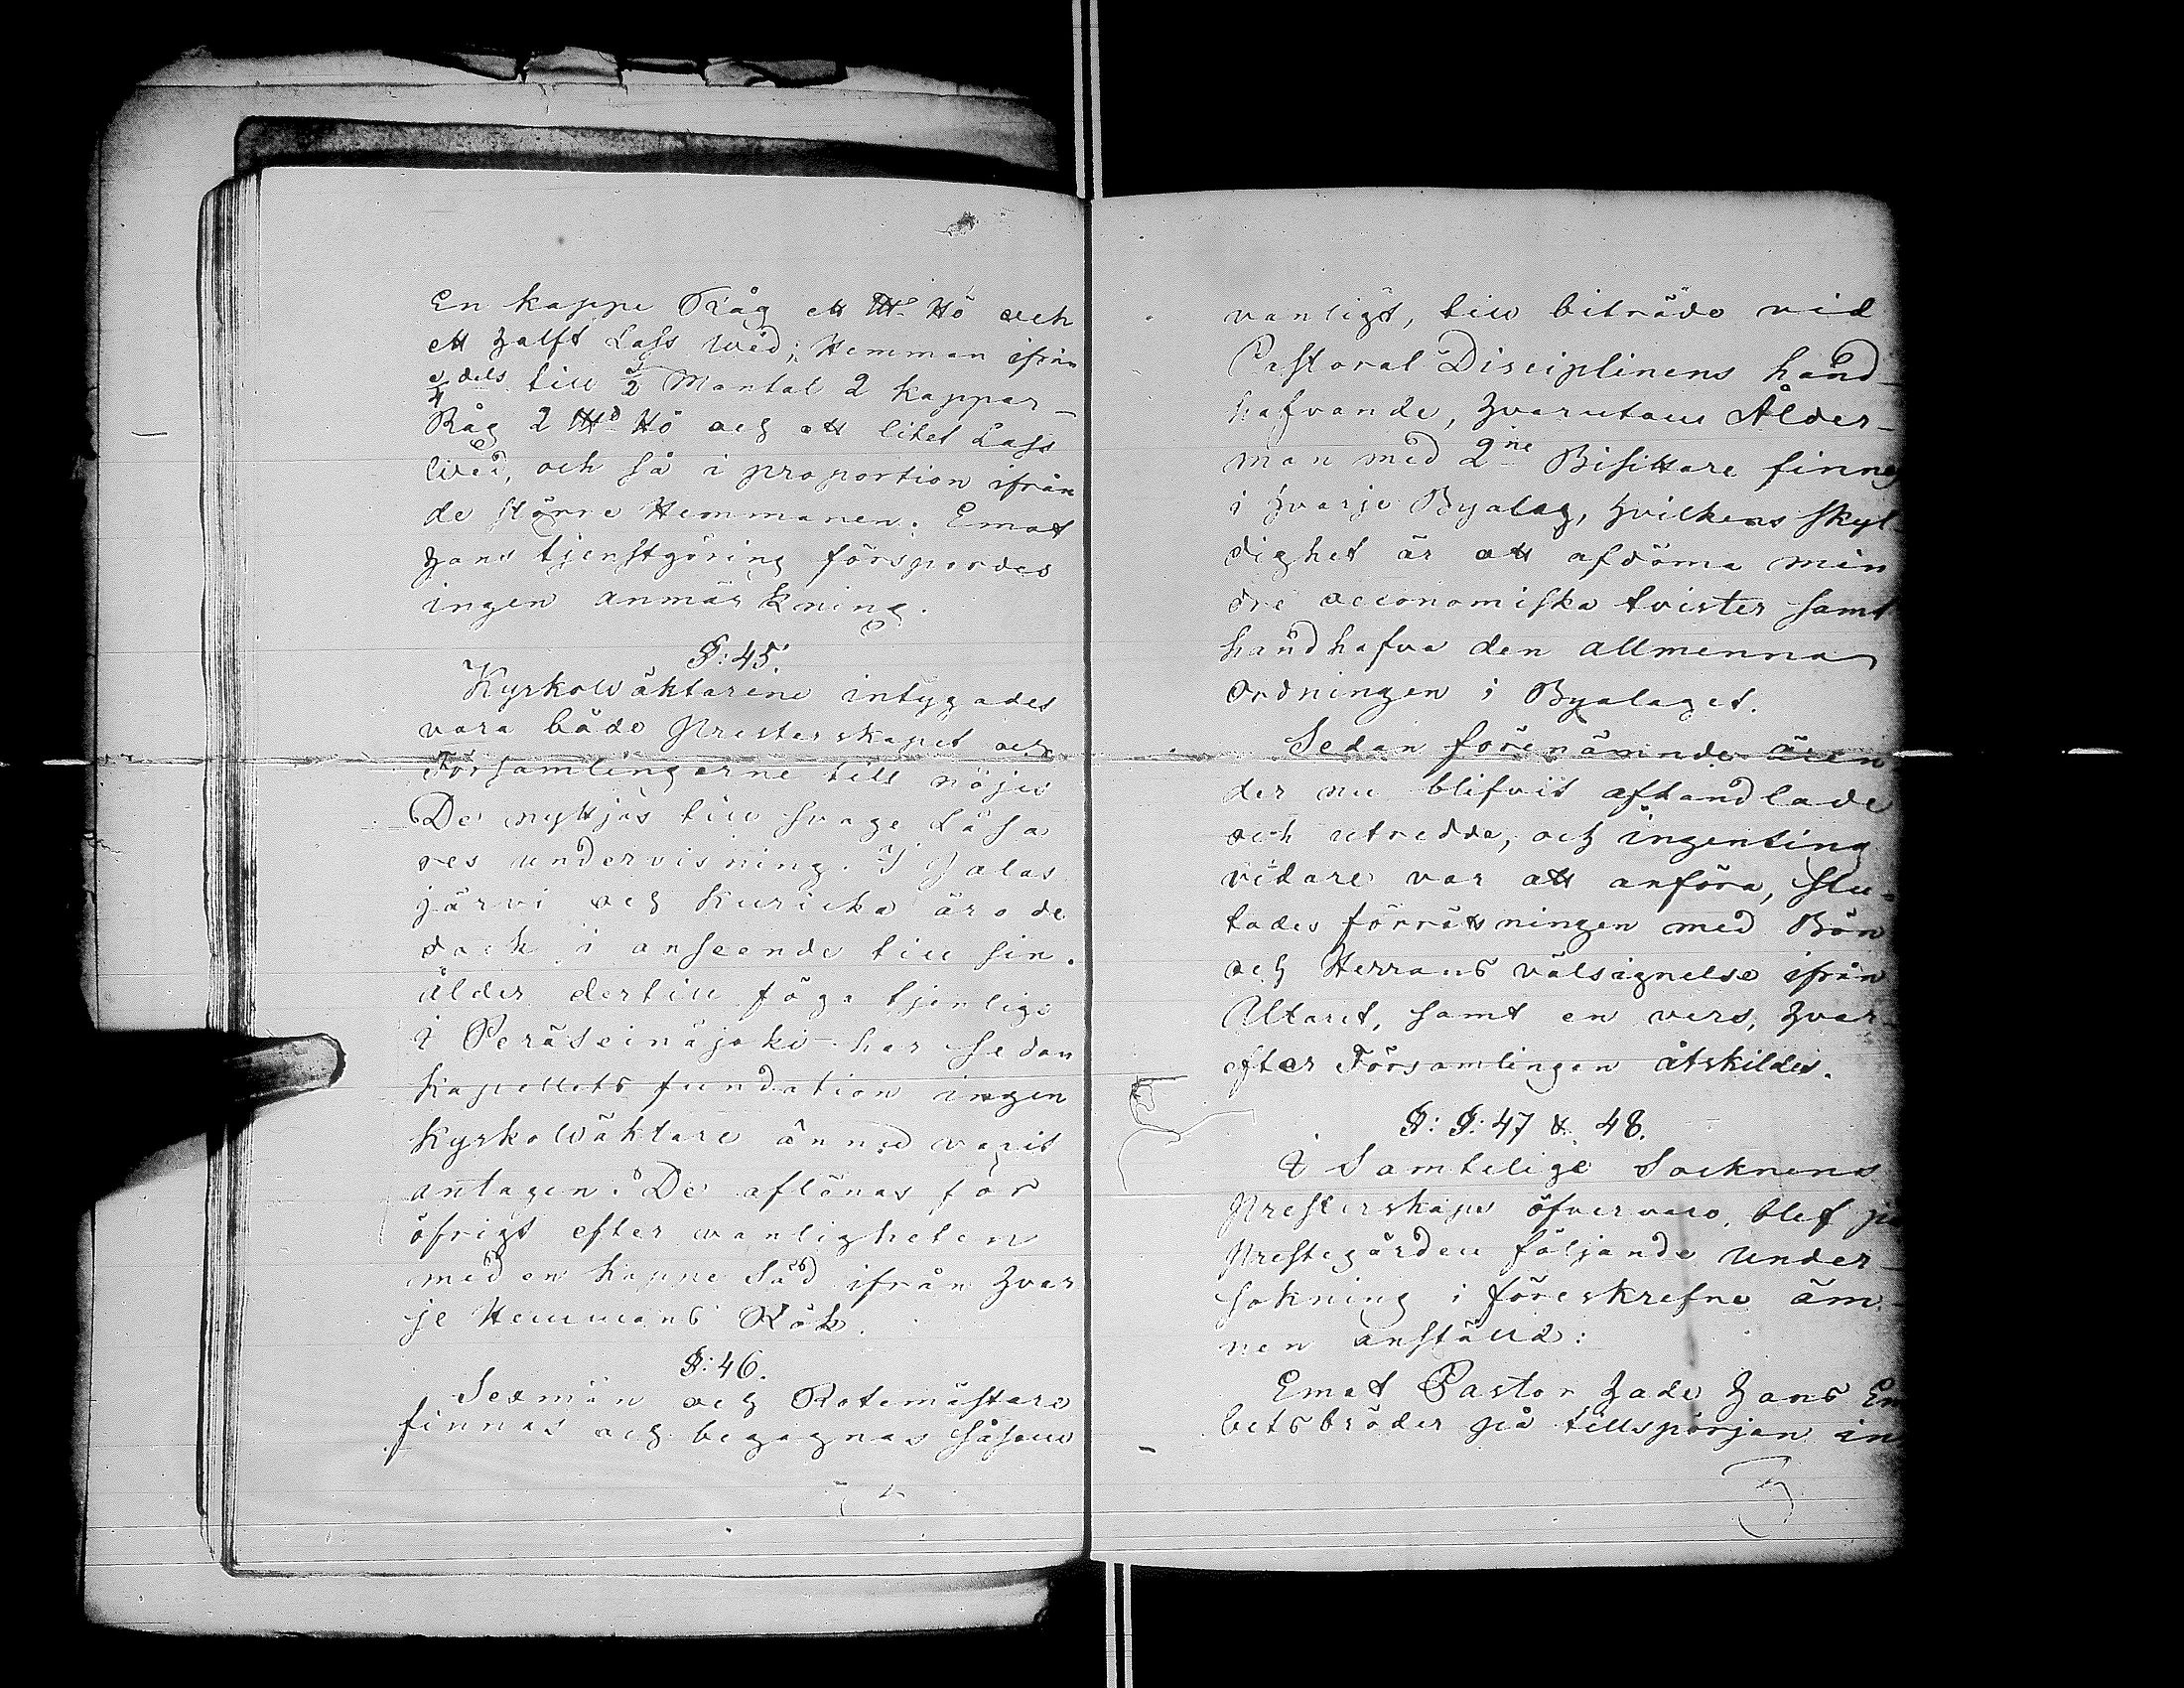 En kappe Råg ett ℔ Hö och
ett halft Lass Wed; Hemman ifrån
1/4 dels till 1/2 Mantal 2 kappar
Råg 2 ℔ Hö och ett litet Lass
Wed, och så i proportion ifrån
de större Hemmanen. Emot
hans tjenstgöring förspordes
ingen anmärkning.
§: 45.
Kyrkowäktarene intygades
vara både Presterskapet och
Församlingarne till nöjes
De nyttjas till svage Läsa
res undervisning. I Jalas
järvi och Kuricka äro de
dock i anseende till sin
ålder dertill föga tjenlige
I Peräseinäjoki har sedan
Kapellets fundation ingen
Kyrkowäktare ännu varit
antagen. De aflönas för
öfrigt efter wanligheten
med en kappe Säd ifrån hvar
je Hemmans Rök.
§: 46.
Sexmän och Rotemästare
finnas och begagnas såsom
vanligt, till biträde vid
Pastoral Disciplinens hand-
hafvande, hvarutom Ålder-
man med 2ne Bisittare finnes
i hvarje Byalag, hvilkens skyl-
dighet är att afdöma min
dre oeconomiska tvister samt
handhafva den allmenna
Ordningen i Byalaget.
Sedan förenämnde ären-
der nu blifvit afhandlade
och utredde, och ingenting
vidare var att anföra, slu-
tades förrättningen med Bön
och Herrans välsignelse ifrån
Altaret, samt en vers, hvar-
efter Församlingen åtskildes.
§: §: 47 & 48.
I Samtelige Socknens
Presterskaps öfvervaro, blef på
Prestegården följande under-
sökning i föreskrefne äm-
nen anställd:
Emot Pastor hade hans Em
betsbröder på tillspörjan in